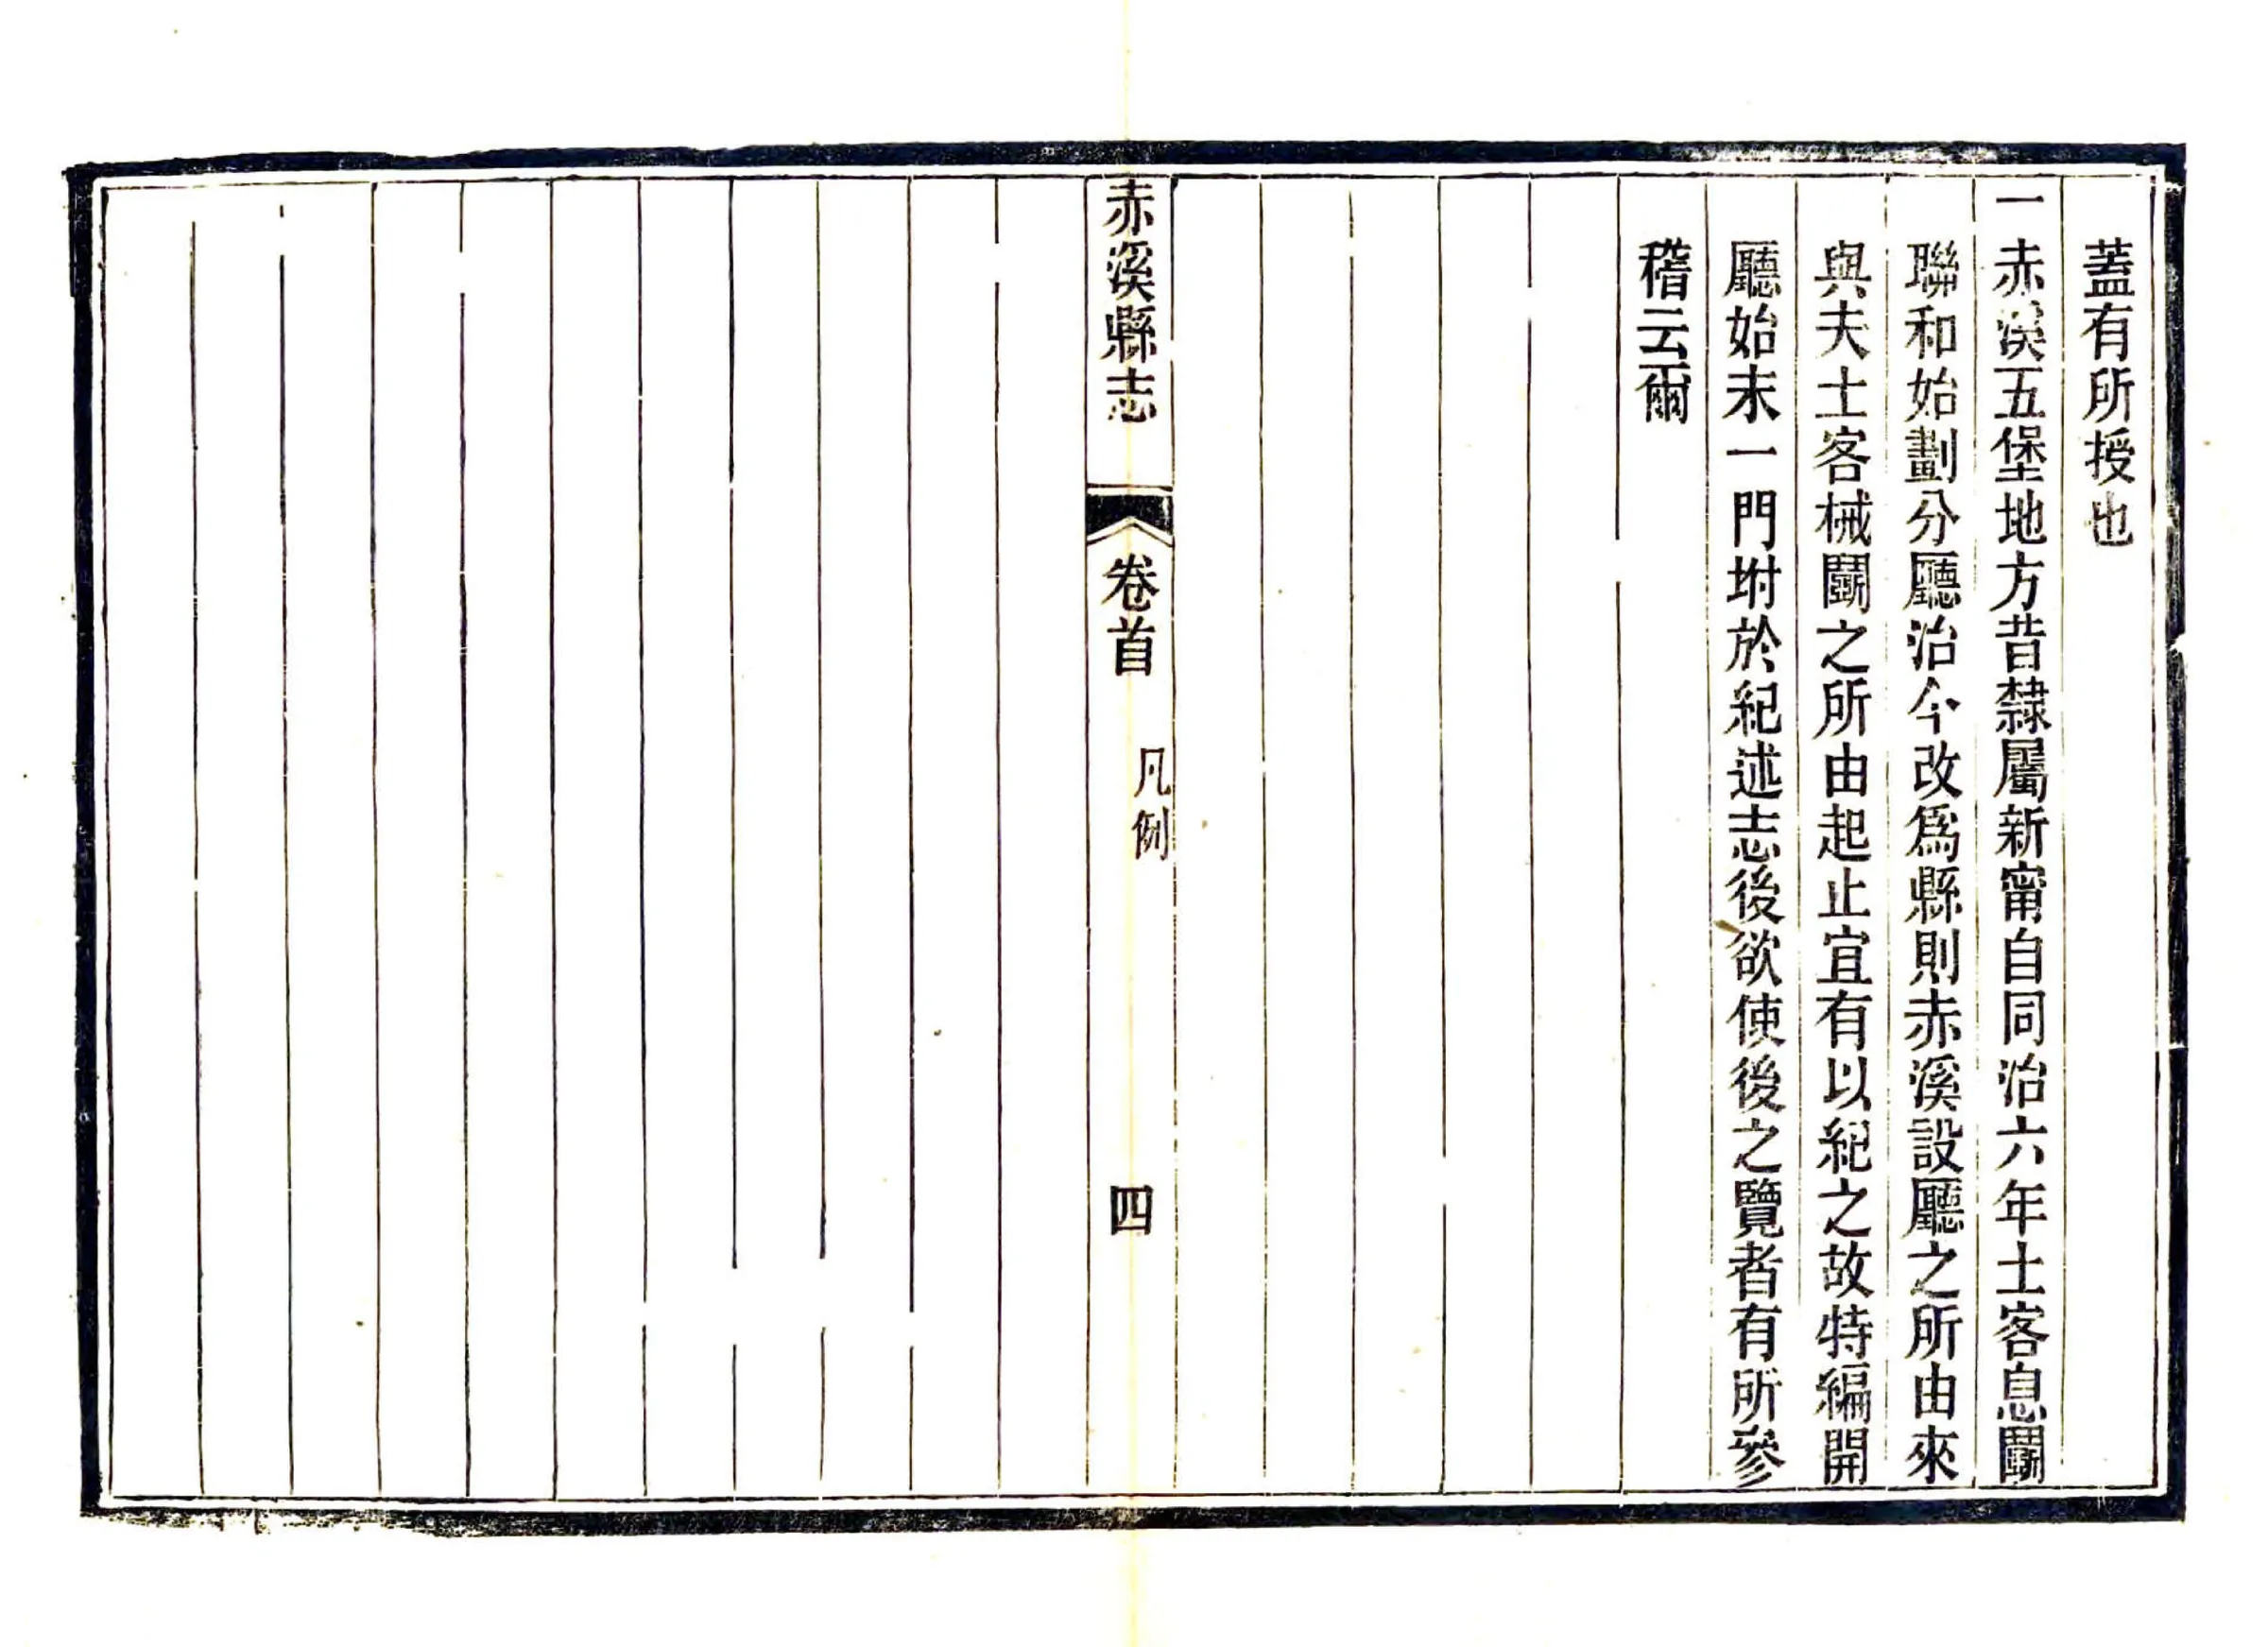 蓋有所授也
一赤溪五堡地方昔隸屬新甯自同治六年土客息鬬
聯和始劃分廳治今改爲縣則赤溪設廳之所由來
與夫土客械鬬之所由起止宜有以紀之故特編開
廳始末一門坿於紀述志後欲使後之覽者有所參
稽云爾
赤溪縣志
卷首
凡例
四